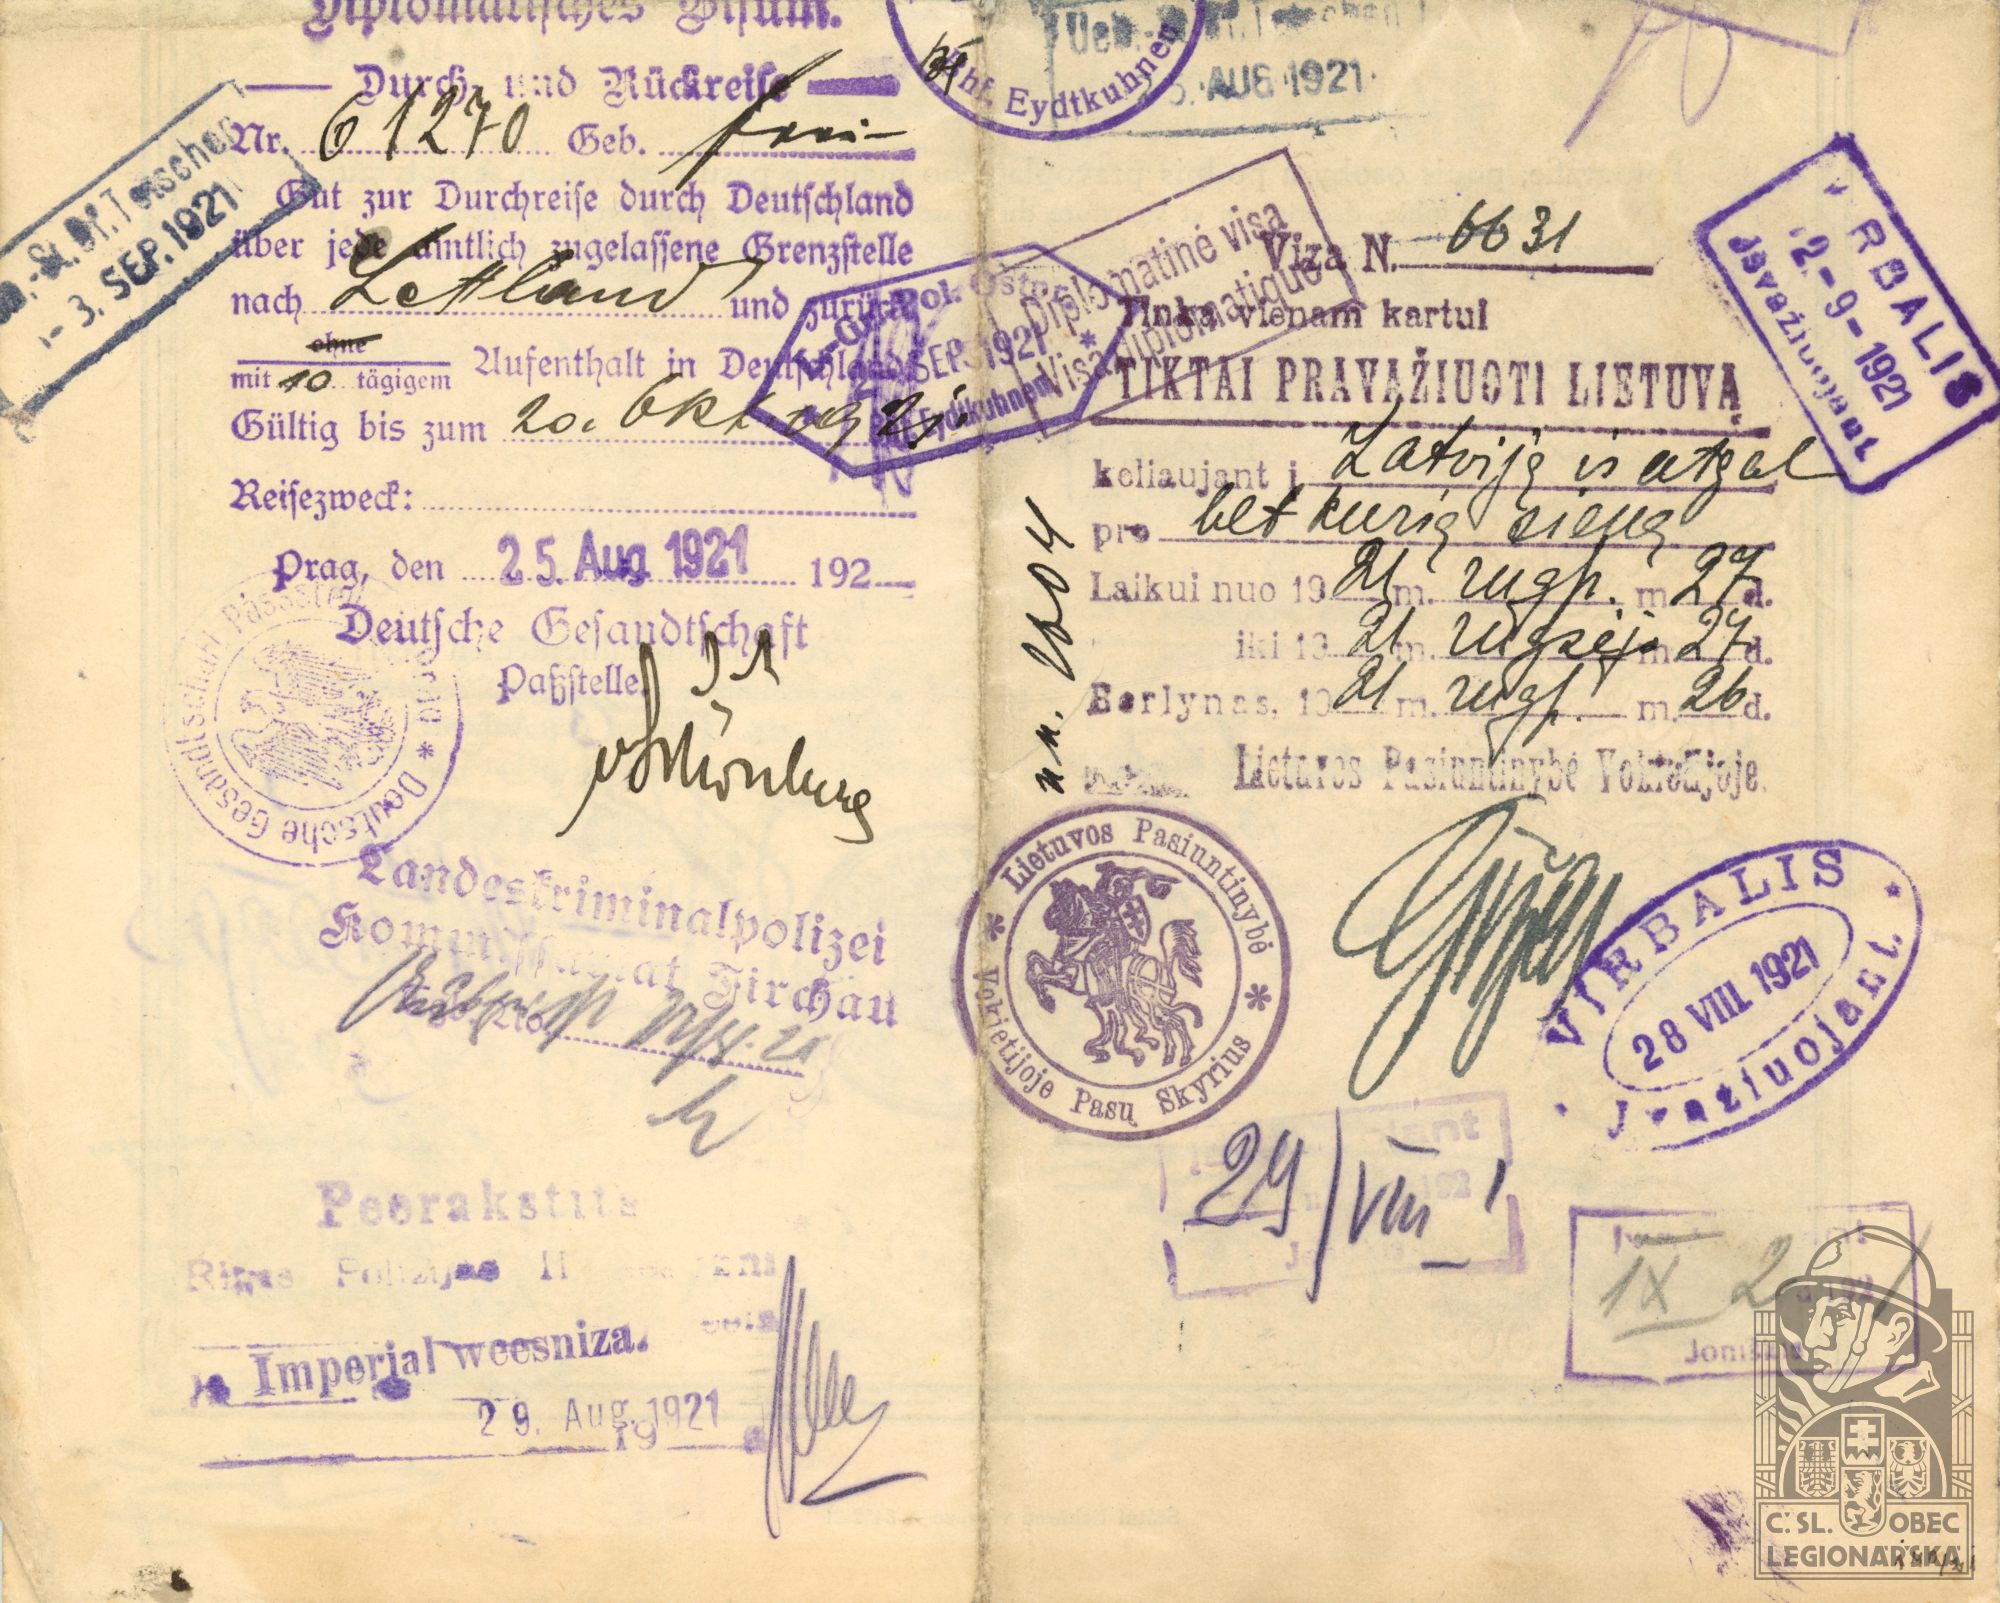 Diplomatisches Visum.
Durch- und Rückreise
Nr. 61270 Geb. frei
Gut zur Durchreise durch Deutschland
über jede amtlich zugelassene Grenzstelle
nach Lettland und zurück
ohne
mit 10 tägigem Aufenthalt in Deutschland
Gültig bis zum 20. Okt. 1921.
Reisezweck:
Prag, den 25 Aug 1921 192
Deutsche Gesandtschaft
Paßstelle.
Deutsche Gesandtschaft Passstelle Prag *
Landeskriminalpolizei
Kommissariat Dirschau
Peerakstits
Rigas Polizijas II
Imperial weesniza.
29. Aug. 1921
19
Tetschen
- 3. SEP. 1921
Bhf. Eydtkuhnen
Tetschen
AUG 1921
Gr. Pol. Ostpr.
SEP. 1921 *
Eydtkuhnen
Diplomatinė visa
Visa diplomatique
Viza N. 6631
Tinka vienam kartui
TIKTAI PRAVAŽIUOTI LIETUVĄ
keliaujant į Latviją ir atgal
pro bet kurią sieną
Laikui nuo 1921 m. rugp. m. 27 d.
iki 1921 m. rugsėjo m. 27 d.
Berlynas, 1921 m. rugp. m. 26 d.
Lietuvos Pasiuntinybė Vokietijoje.
2004
* Lietuvos Pasiuntinybė *
Vokietijoje Pasų Skyrius
VIRBALIS
2-9-1921
Įvažiuojant
VIRBALIS
28 VIII 1921
Įvažiuojant.
29/VIII
IX 21
Joniš
Č. SL. OBEC
LEGIONÁŘSKÁ